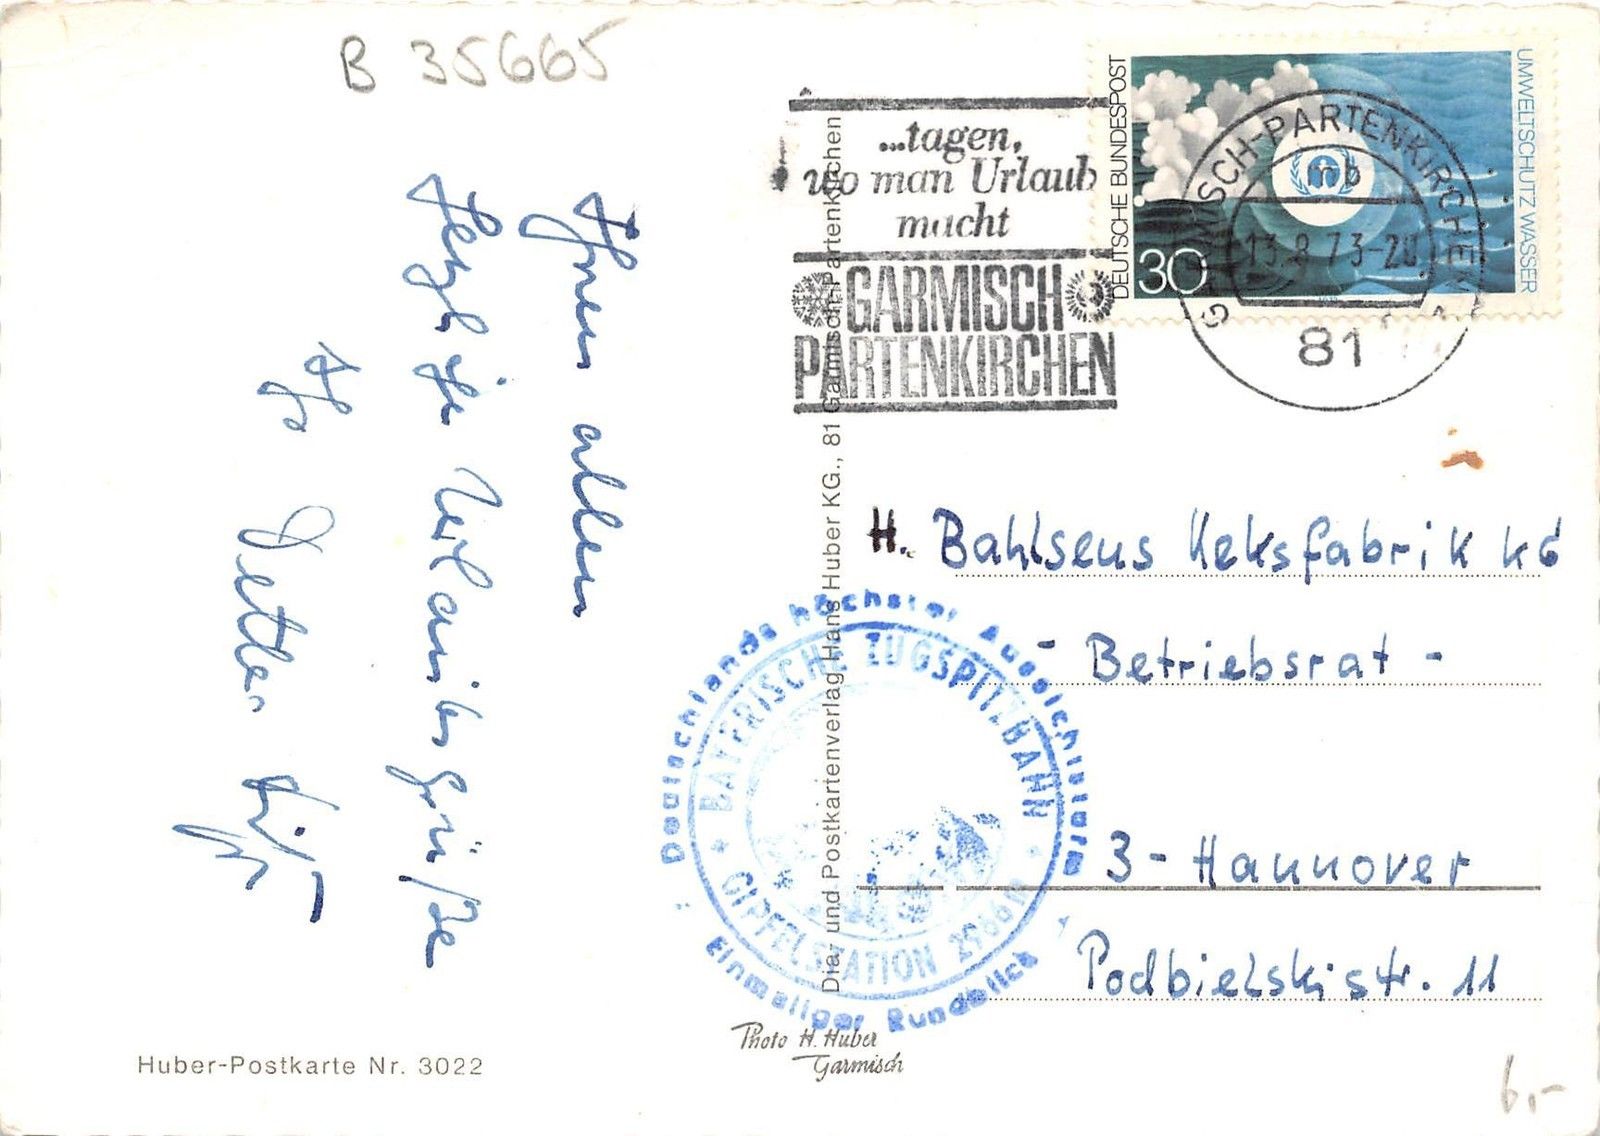 B 35665
...tagen,
wo man Urlaub
macht
GARMISCH
PARTENKIRCHEN
DEUTSCHE BUNDESPOST
30
UMWELTSCHUTZ WASSER
GARMISCH-PARTENKIRCHEN
mb
13.8.73-20
81
Ihnen allen
Herzliche Urlaubsgrüße
Ihr Detlev
H. Bahlsens Keksfabrik KG
- Betriebsrat -
3-Hannover
Podbielskistr. 11
Deutschlands höchster Aussichtsturm
BAYERISCHE ZUGSPITZBAHN
GIPFELSTATION 2966 m
Einmaliger Rundblick
Dia- und Postkartenverlag Hans Huber KG., 81 Garmisch-Partenkirchen
Photo H. Huber
Garmisch
Huber-Postkarte Nr. 3022
6,-